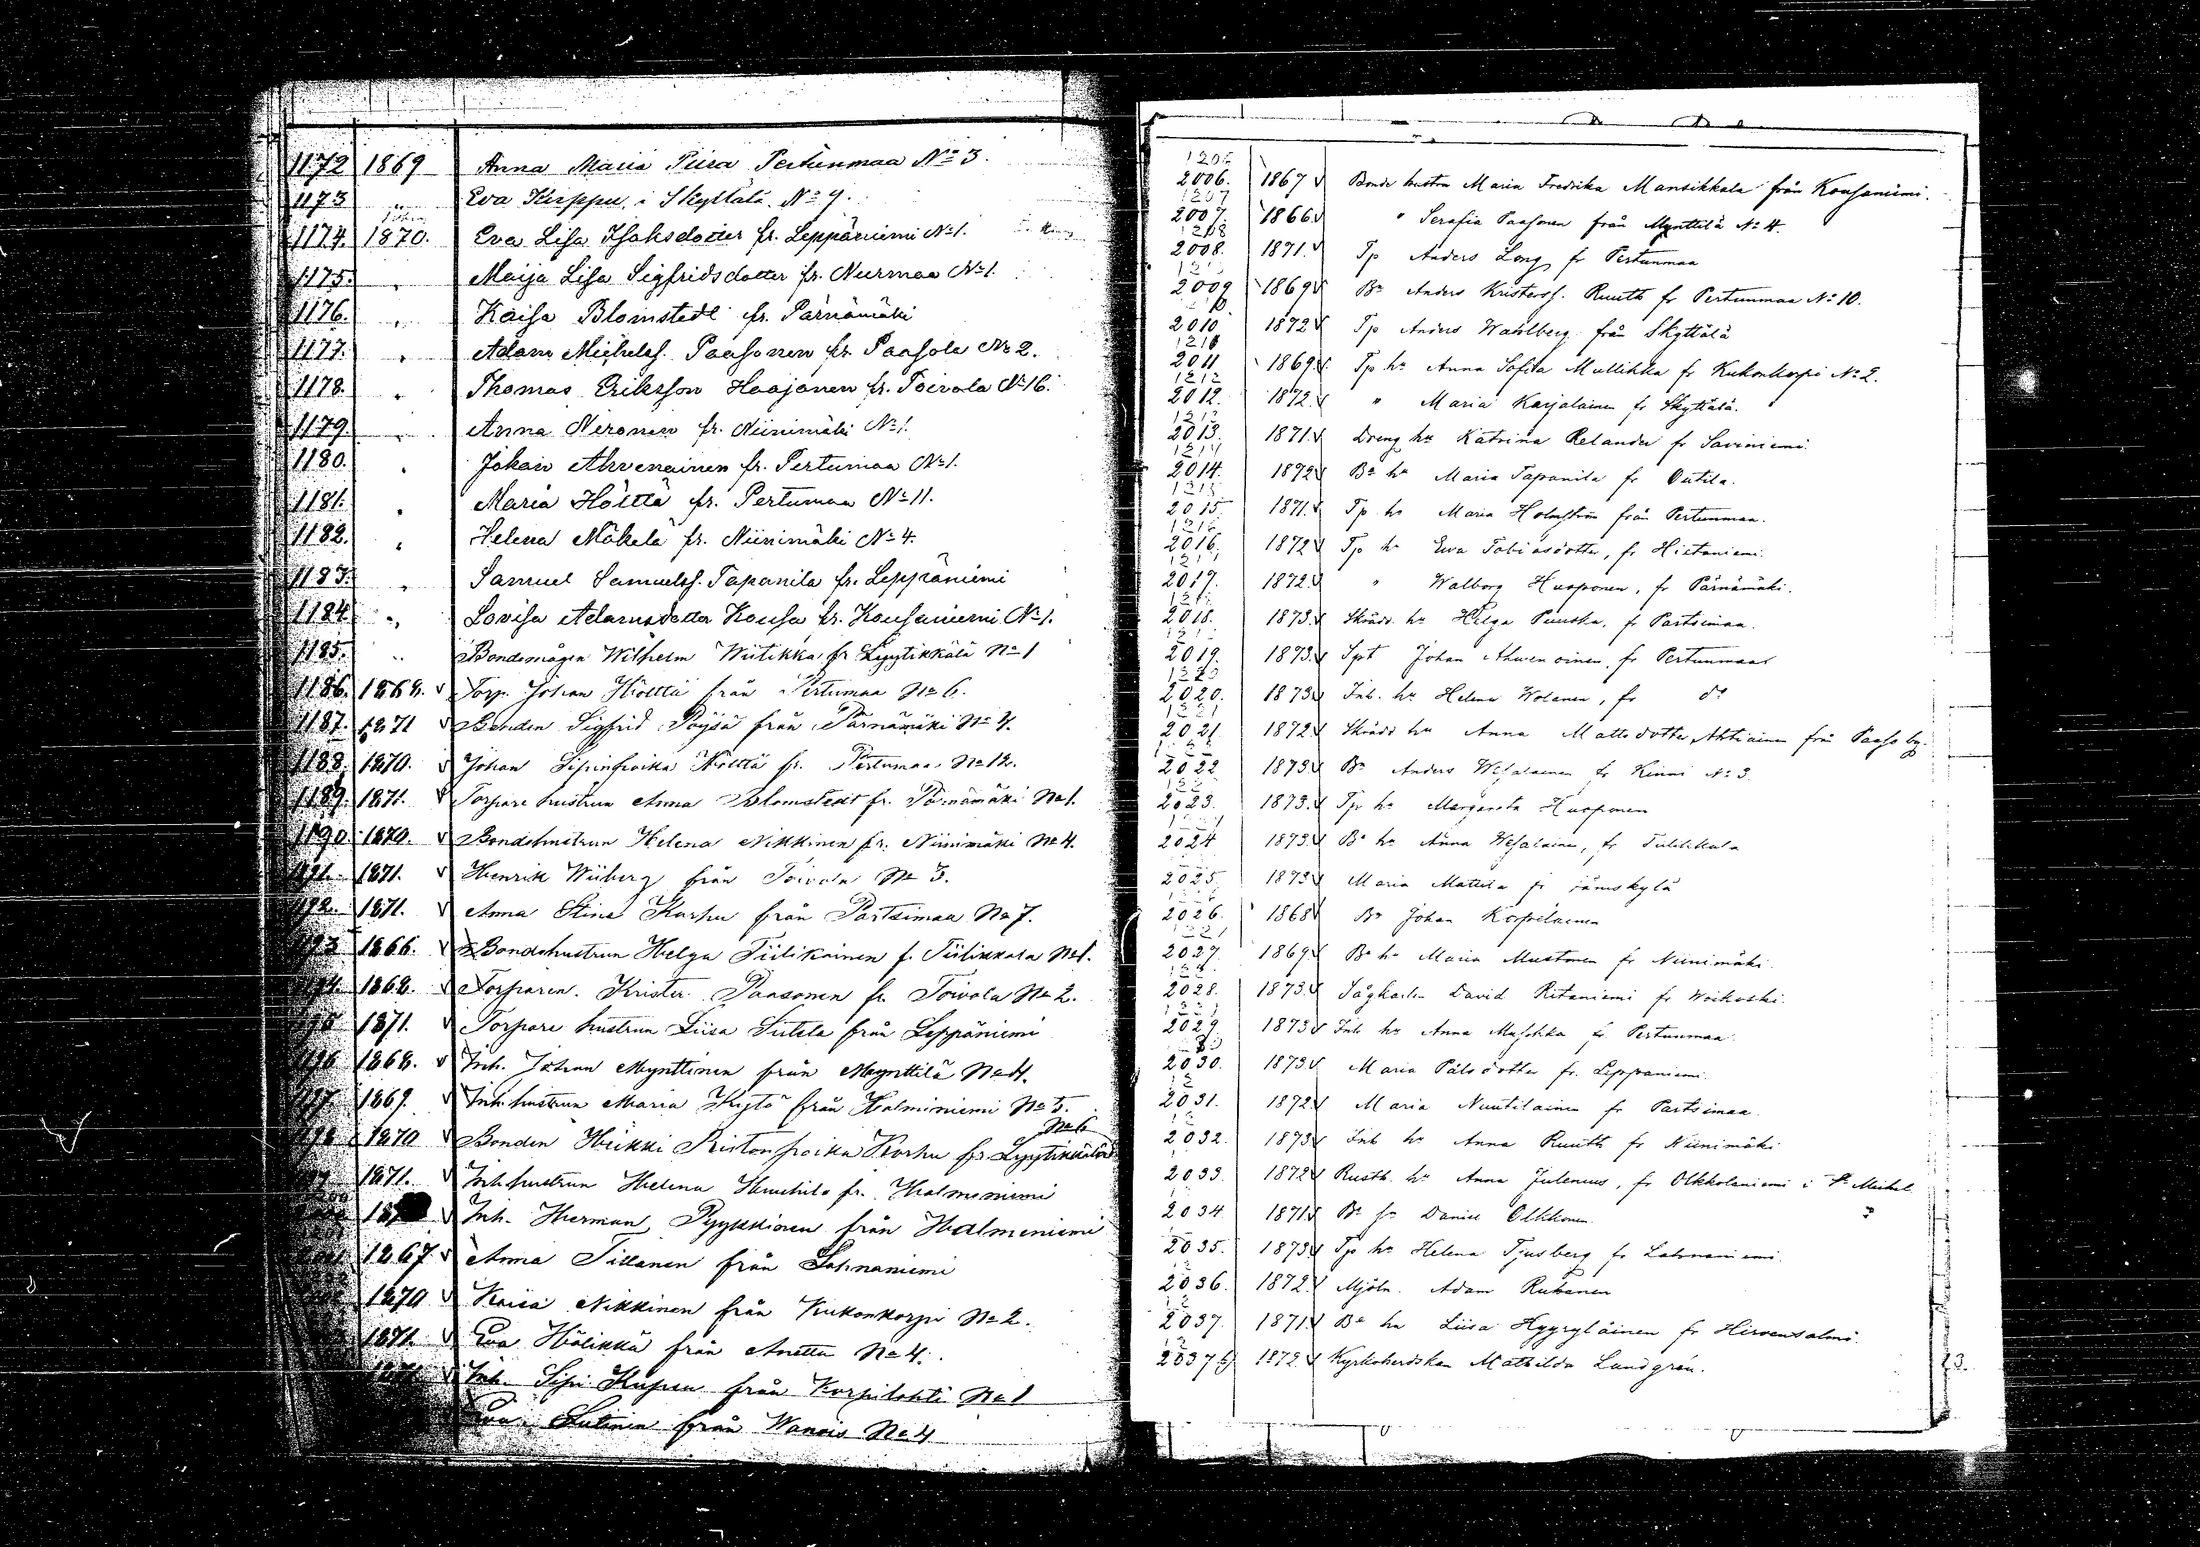 1172 1869 Anna Maria Piira Pertunmaa No 3.
1173 " Eva Kirppu i Skyttälä No 9.
1174. 1870. Eva Lisa Isaksdotter fr. Leppäniemi No 1.
1175. " Maija Lisa Sigfridsdotter fr. Nurmaa No 1.
1176. " Kaisa Blomstedt fr. Pärnämäki
1177. " Adam Michelss. Paasonen fr. Paasola No 2.
1178. " Thomas Eriksson Haajanen fr. Toivola No 16.
1179. " Anna Nironen fr. Niinimäki No 1.
1180. " Johan Ahvenainen fr. Pertumaa No 1.
1181. " Maria Hölttä fr. Pertumaa No 11.
1182. " Helena Mäkelä fr. Niinimäki No 4.
1183. " Samuel Samuelss. Tapanila fr. Leppäniemi
1184. " Lovisa Adamsdotter Kousa fr. Kousaniemi No 1.
1185. " Bondemågen Wilhelm Wiitikka fr Lyytikkälä No 1
1186. 1868. v Torp. Johan Hölttä från Pertumaa No 6.
1187. 1871 v Bonden Sigfrid Pöysä från Pärnämäki No 4.
1188. 1870. v Johan Sipinpoika Hölttä fr. Pertumaa No 12.
1189. 1871. v Torpare hustrun Anna Blomstedt fr. Pärnämäki No 1.
1190. 1870. v Bondehustrun Helena Nikkinen fr. Niinimäki No 4.
1191. 1871. v Henrik Wiiberg från Toivola No 3.
1192. 1871. v Anna Stina Karhu från Partsimaa No 7.
1193 1866. v Bondehustrun Helga Tiilikainen f. Tiilikkala No 1.
1194. 1868. v Torparen Krister Paasonen fr Toivola No 2.
1195 1871. v Torpare hustrun Liisa Sutela från Leppäniemi
1196 1868. v Inh. Johan Mynttinen från Mynttilä No 4.
1197. 1869. v Inh. hustrun Maria Kytö från Halminiemi No 5.
No 6
1198 1870 v Bonden Heikki Ristonpoika Korhu fr Lyytikkälä
1871. v Inh. hustrun Helena fr. Halmeniemi
v Inh. Herman Pyykkönen från Halmeniemi
1867 v Anna Tillanen från Lahnaniemi
1870 v Kaisa Nikkinen från Kukonkorpi No 2.
1871. v Eva Hälikkä från Anetta No 4.
v Inh. Sipi från Korpilahti No 1
Eva Sutinen från Wanois No 4
1206
2006. 1867 v Bonde hustrun Maria Fredrika Mansikkala från Kousaniemi.
1207
2007. 1866. v " Serafia Paasonen från Mynttilä No 4.
1208
2008. 1871. v Tp Anders Long fr Pertunmaa
2009 1869 v Bn Anders Kristerss. Ruuth fr Pertunmaa No 10.
2010 1872 v Tp Anders Wahlberg från Skyttälä
2011 1869. v Tp hu Anna Sofia Mullikka fr Kukonkorpi No 2.
1212
2012. 1872. v " Maria Karjalainen fr Skyttälä.
1213
2013. 1871. v Dreng hu Katrina Relander fr Saviniemi.
1214
2014. 1872 v Bn hu Maria Tapanila fr Outila.
1215
2015. 1871. v Tp. hu Maria Holmström från Pertunmaa.
1216
2016. 1872 v Tp hu Ewa Tobiasdotter, fr Hietaniemi.
2017. 1872. v " Walborg Huoponen, fr Pärnämäki.
2018. 1873. v Skrädd. hu Helga Puuska, fr Partsimaa.
2019. 1873. v Spt Johan Ahwenainen, fr Pertunmaa
2020. 1873. v Inh. hu Helena Wolanen, fr do
2021. 1872 v Skrädd hu Anna Mattsdotter Ahtiainen från Paaso by.
2022 1873. v Bn Anders Wesalainen fr Kinni No 3.
2023. 1873. v Tp hu Margareta Huoponen
2024 1873. v Bn hu Anna Wesalainen, fr Tiilikkala
2025. 1873 v Maria Mattila fr
2026. 1868 v Bn Johan Korpelainen
2027. 1869 v Bn hu Maria Mustonen fr Niinimäki.
2028. 1873. v Sågkarlen David Ritaniemi fr Woikoski.
2029. 1873 v Inh hu Anna Muschka fr Pertunmaa.
2030. 1873. v Maria Pålsdotter fr. Leppäniemi.
2031. 1872 v Maria Nuutilainen fr Partsimaa.
2032. 1873 v Inh hu Anna Ruuth fr Niinimäki
2033. 1872 v Rusth. hu Anna Julenius, fr Olkkolaniemi i St Michel
2034 1871. v Bn Daniel Olkkonen.
2035. 1873. v Tp hu Helena Tjusberg fr Lahnaniemi.
2036. 1872. v Mjöln. Adam Rubanen
2037. 1871. v Bn hu Liisa Hyyryläinen fr Hirvensalmi.
2037 b) 1872 v Kyrkoherdskan Mathilda Lundgrén.